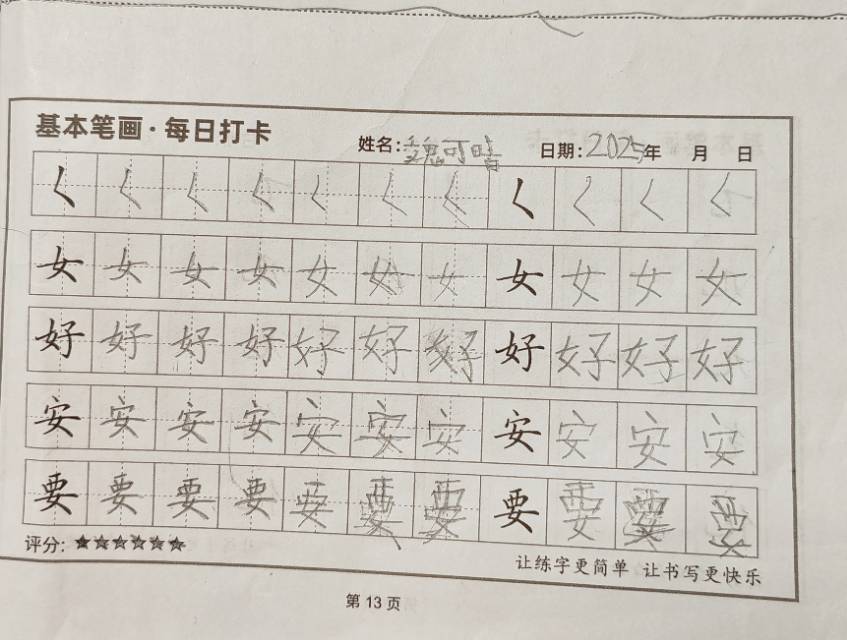 基本笔画·每日打卡
姓名:魏可晴 日期:2025年 月 日
く く く く く く く く く く く
女 女 女 女 女 女 女 女 女 女 女
好 好 好 好 好 好 好 好 好 好 好
安 安 安 安 安 安 安 安 安 安 安
要 要 要 要 要 要 要 要 要 要 要
评分:★☆☆☆☆☆
让练字更简单 让书写更快乐
第 13 页